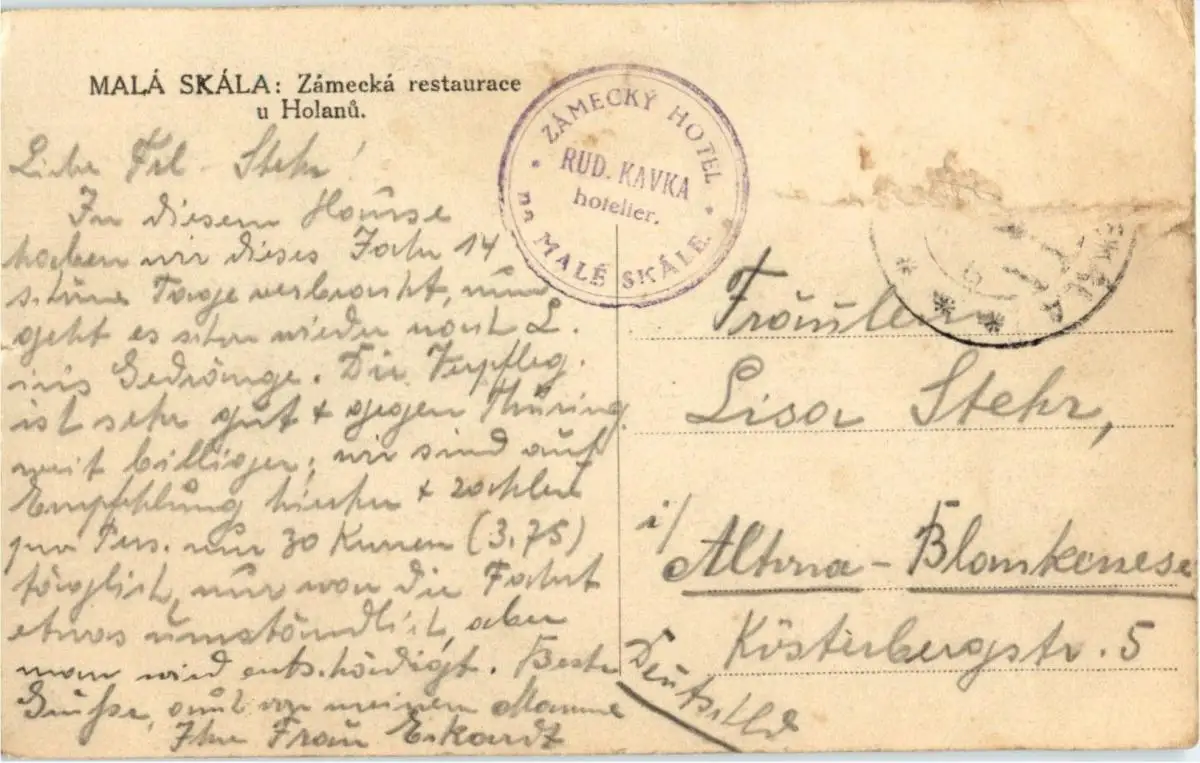 MALÁ SKÁLA: Zámecká restaurace
u Holanů.
ZÁMECKÝ HOTEL
RUD. KAVKA
hotelier.
na MALÉ SKÁLE
Liebe Frl. Stehr!
In diesem Hause
haben wir dieses Jahr 14
schöne Tage verbracht, nun
geht es schon wieder nach L.
ins Gedränge. Die Verpfleg.
ist sehr gut + gegen Thüring.
weit billiger; wir sind auf
Empfehlung hierher + zahlen
pro Pers. nur 30 Kronen (3,75)
täglich, nur war die Fahrt
etwas umständlich, aber
man wird entschädigt. Beste
Grüße, auch von meinem Manne
Ihre Frau Eckardt
Fräulein
Lisa Stehr,
i/ Altona - Blankenese
Kösterbergstr. 5
Deutschld